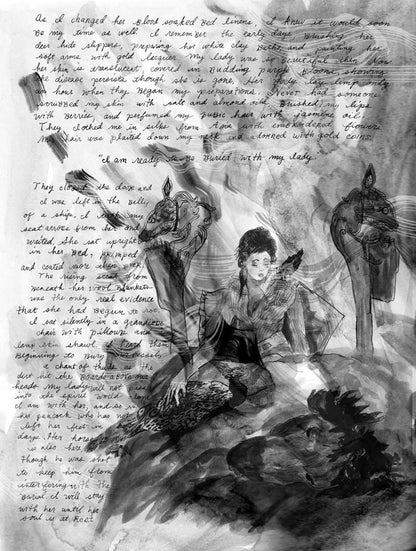 As I changed her blood soaked bed linens, I knew it would soon
be my time as well. I remember the early days. Brushing her
deer hide slippers, preparing her white clay baths and painting her
soft arms with gold lacquer. My lady was so beautiful then. Now
her skin is translucent, covered in budding purple blooms, showing
the disease persists though she is gone. Her body lay limp only
an hour when they began my preparations. Never had someone
scrubbed my skin with salt and almond oil, blushed my lips
with berries and perfumed my pubic hair with jasmine oil.
They clothed me in silks from Asia with embroidered flowers.
My hair was plaited down my neck and adorned with gold coins.
"I am ready to be buried with my lady."
They closed the door and
I was left in the belly
of a ship. I took my
seat across from her and
waited. She sat upright
in her bed, primped
and coated more than
The rising scent from
beneath her wool blankets
was the only real evidence
that she had begun to rot.
I sat silently in a grandiose
chair with pillows and
long skin shawl. I heard them
beginning to bury our vessels,
a chant of thuds as the
dirt hit the boards above our
heads. My lady will not
into the spirit world alone.
I am with her, and so is
her peacock who has not
left her feet in
days. Her horse
is also here,
though he was shot
to keep him from
interfering with the
burial. I will stay
with her until her
soul is at rest.